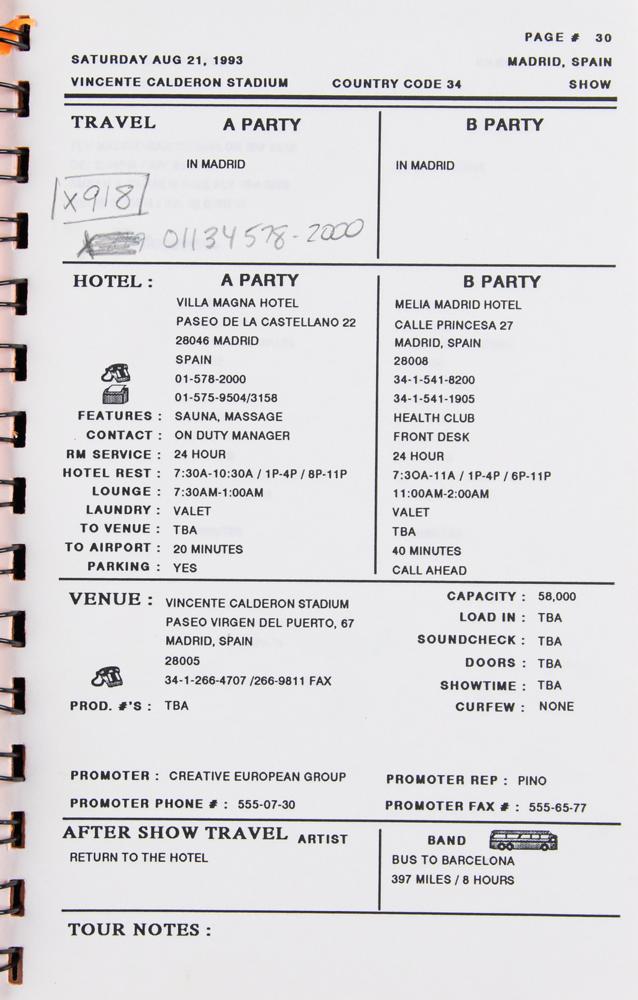 PAGE # 30
SATURDAY AUG 21, 1993 MADRID, SPAIN
VINCENTE CALDERON STADIUM COUNTRY CODE 34 SHOW
TRAVEL A PARTY B PARTY
IN MADRID IN MADRID
X918
01134 578-2000
HOTEL : A PARTY B PARTY
VILLA MAGNA HOTEL MELIA MADRID HOTEL
PASEO DE LA CASTELLANO 22 CALLE PRINCESA 27
28046 MADRID MADRID, SPAIN
SPAIN 28008
01-578-2000 34-1-541-8200
01-575-9504/3158 34-1-541-1905
FEATURES : SAUNA, MASSAGE HEALTH CLUB
CONTACT : ON DUTY MANAGER FRONT DESK
RM SERVICE : 24 HOUR 24 HOUR
HOTEL REST : 7:30A-10:30A / 1P-4P / 8P-11P 7:30A-11A / 1P-4P / 6P-11P
LOUNGE : 7:30AM-1:00AM 11:00AM-2:00AM
LAUNDRY : VALET VALET
TO VENUE : TBA TBA
TO AIRPORT : 20 MINUTES 40 MINUTES
PARKING : YES CALL AHEAD
VENUE : VINCENTE CALDERON STADIUM CAPACITY : 58,000
PASEO VIRGEN DEL PUERTO, 67 LOAD IN : TBA
MADRID, SPAIN SOUNDCHECK : TBA
28005 DOORS : TBA
34-1-266-4707 /266-9811 FAX SHOWTIME : TBA
PROD. #'S : TBA CURFEW : NONE
PROMOTER : CREATIVE EUROPEAN GROUP PROMOTER REP : PINO
PROMOTER PHONE # : 555-07-30 PROMOTER FAX # : 555-65-77
AFTER SHOW TRAVEL ARTIST BAND
RETURN TO THE HOTEL BUS TO BARCELONA
397 MILES / 8 HOURS
TOUR NOTES :